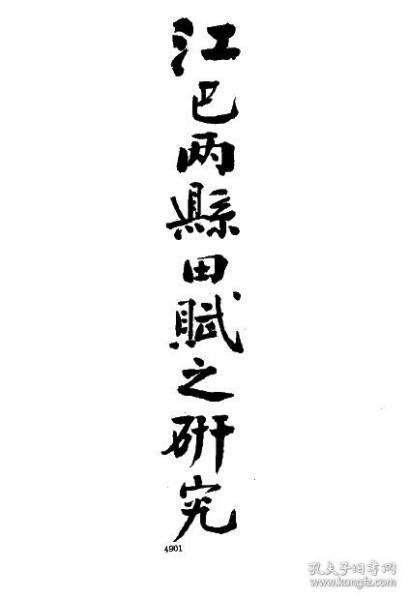 江巴两縣田賦之研究
4901
孔夫子旧书网
www.kongfz.com